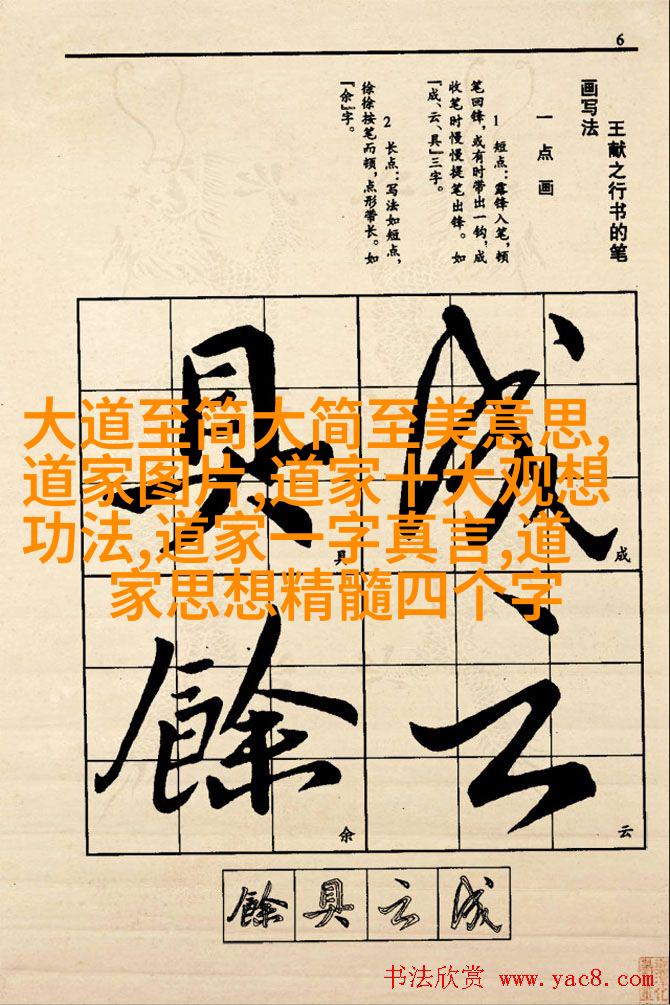 6
王献之行书的笔
画写法
一点画
1 短点：露锋入笔，顿
笔回锋，或有时带出一钩，成
收笔时慢慢提笔出锋。如
「成、云、具」三字。
2 长点：写法如短点，
徐徐按笔而顿，点形带长。如
「余」字。
成
具
云
餘
成
具
云
余
大道至简大简至美意思,
道家图片,道家十大观想
功法,道家一字真言,道
家思想精髓四个字
餘具云成
书法欣赏 www.yac8.com